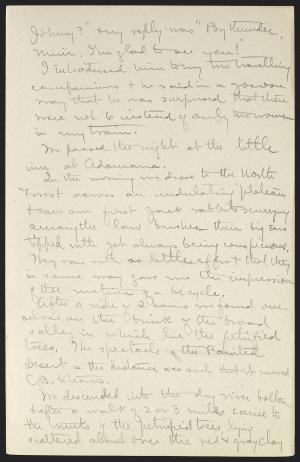 Johnny?" & my reply was "By thunder,
Muir, I'm glad to see you!"
I introduced him to my two travelling
companions & he said in a jocose
way that he was surprised that there
were not 6 instead of only two women
in my train.
We passed the night at the little
inn at Adamana.
In the morning we drove to the North
Forest across an undulating plateau
& saw our first jack rabbits scurrying
among the low bushes their big ears
tipped with jet always being conspicuous.
They ran with so little effort that they
in some way gave me the impression
of the motion of a bicycle.
After a ride of 2 hours we found our-
selves on the brink of the broad
valley in which lie the petrified
trees. The spectacle of the Painted
Desert in the distance was such that it moved
C.B. to tears.
We descended into the dry river bottom
& after a walk of 2 or 3 miles came to
the trunks of the petrified trees, lying
scattered about over the red & gray clay